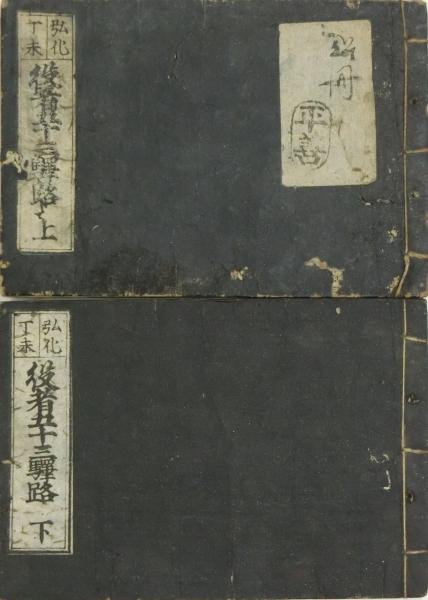 弘化
丁未
役者五十三驛路 上
冊
平吉
弘化
丁未
役者五十三驛路 下